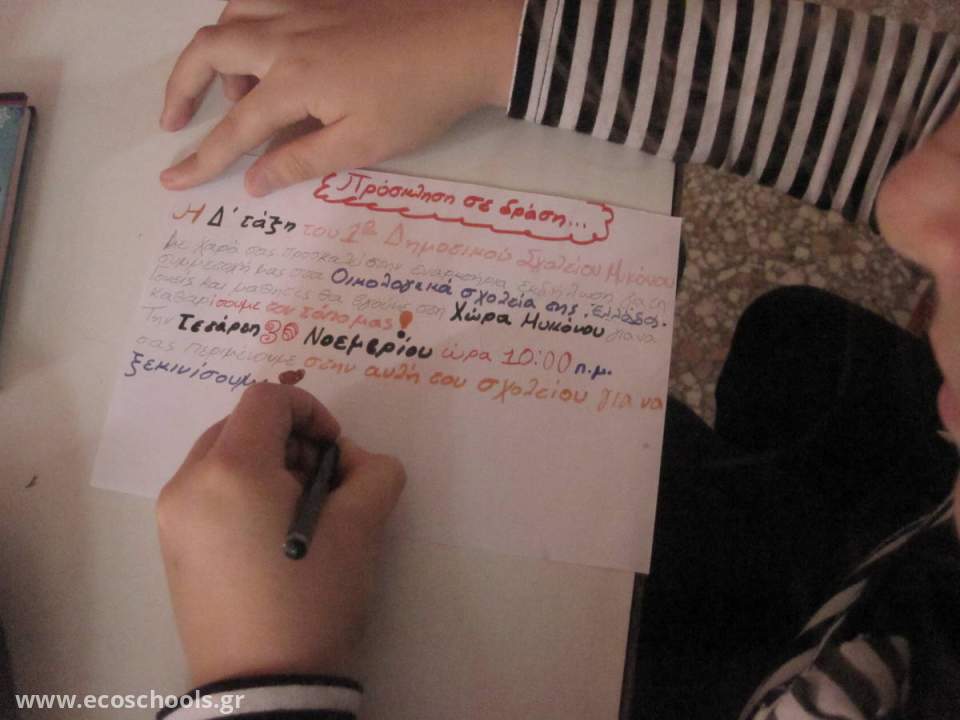 Πρόσκληση σε δράση...
Η Δ' τάξη του 1ου Δημοτικού Σχολείου Μυκόνου
με χαρά σας προσκαλεί στην εναρκτήρια εκδήλωση για τη
συμμετοχή μας στα Οικολογικά σχολεία της Ελλάδος.
Γονείς και μαθητές θα βγούμε στη Χώρα Μυκόνου για να
καθαρίσουμε τον τόπο μας!
Την Τετάρτη 30 Νοεμβρίου ώρα 10:00 π.μ.
σας περιμένουμε στην αυλή του σχολείου για να
ξεκινίσουμε
www.ecoschools.gr